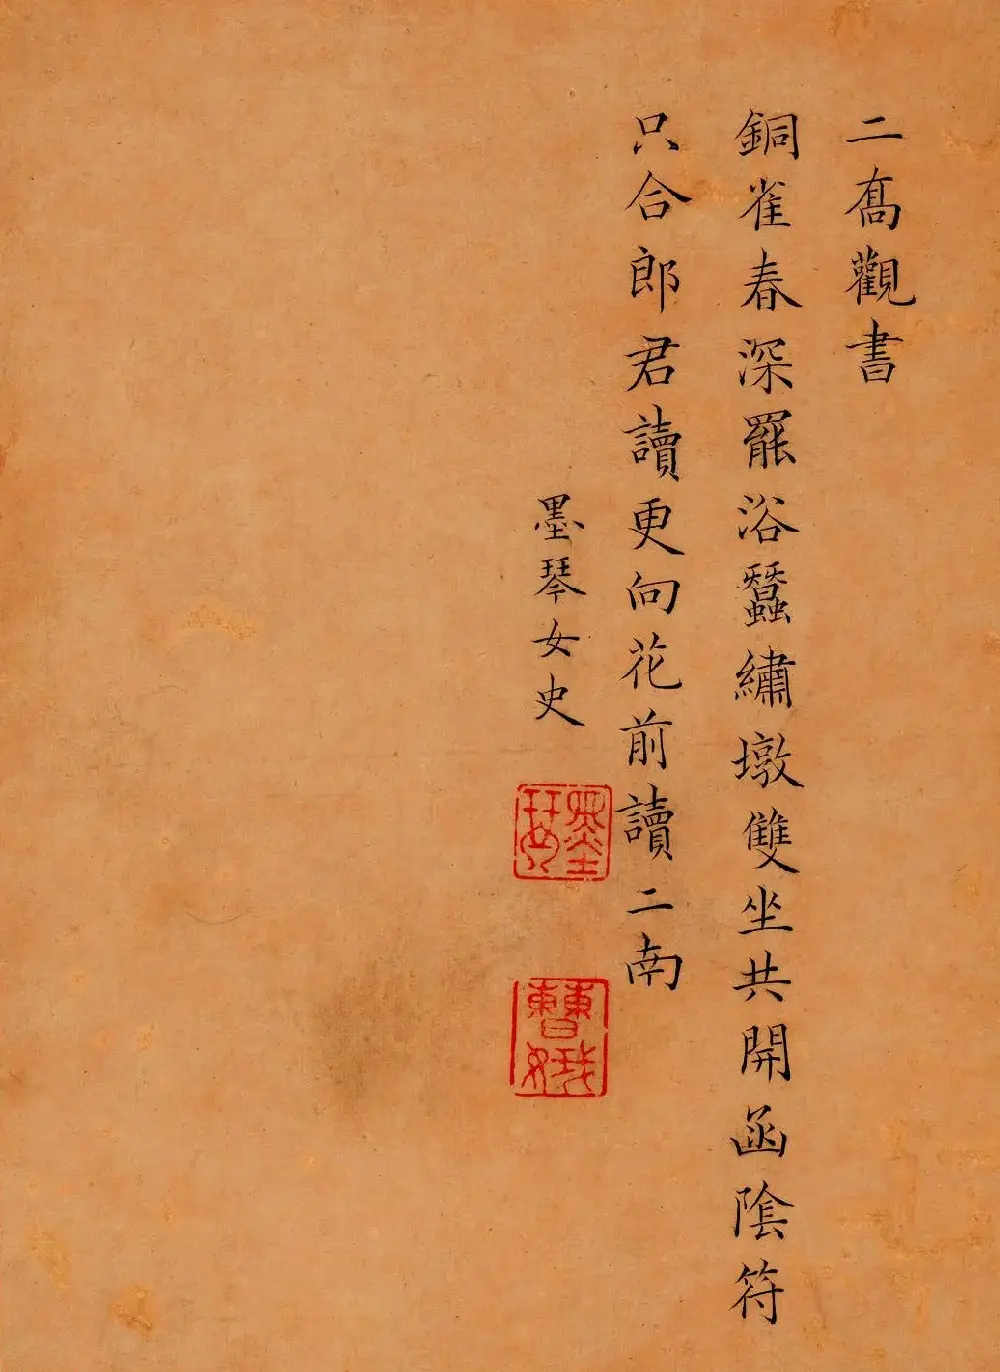 二喬觀書
銅雀春深罷浴蠶繡墩雙坐共開函陰符
只合郎君讀更向花前讀二南
墨琴女史
墨琴